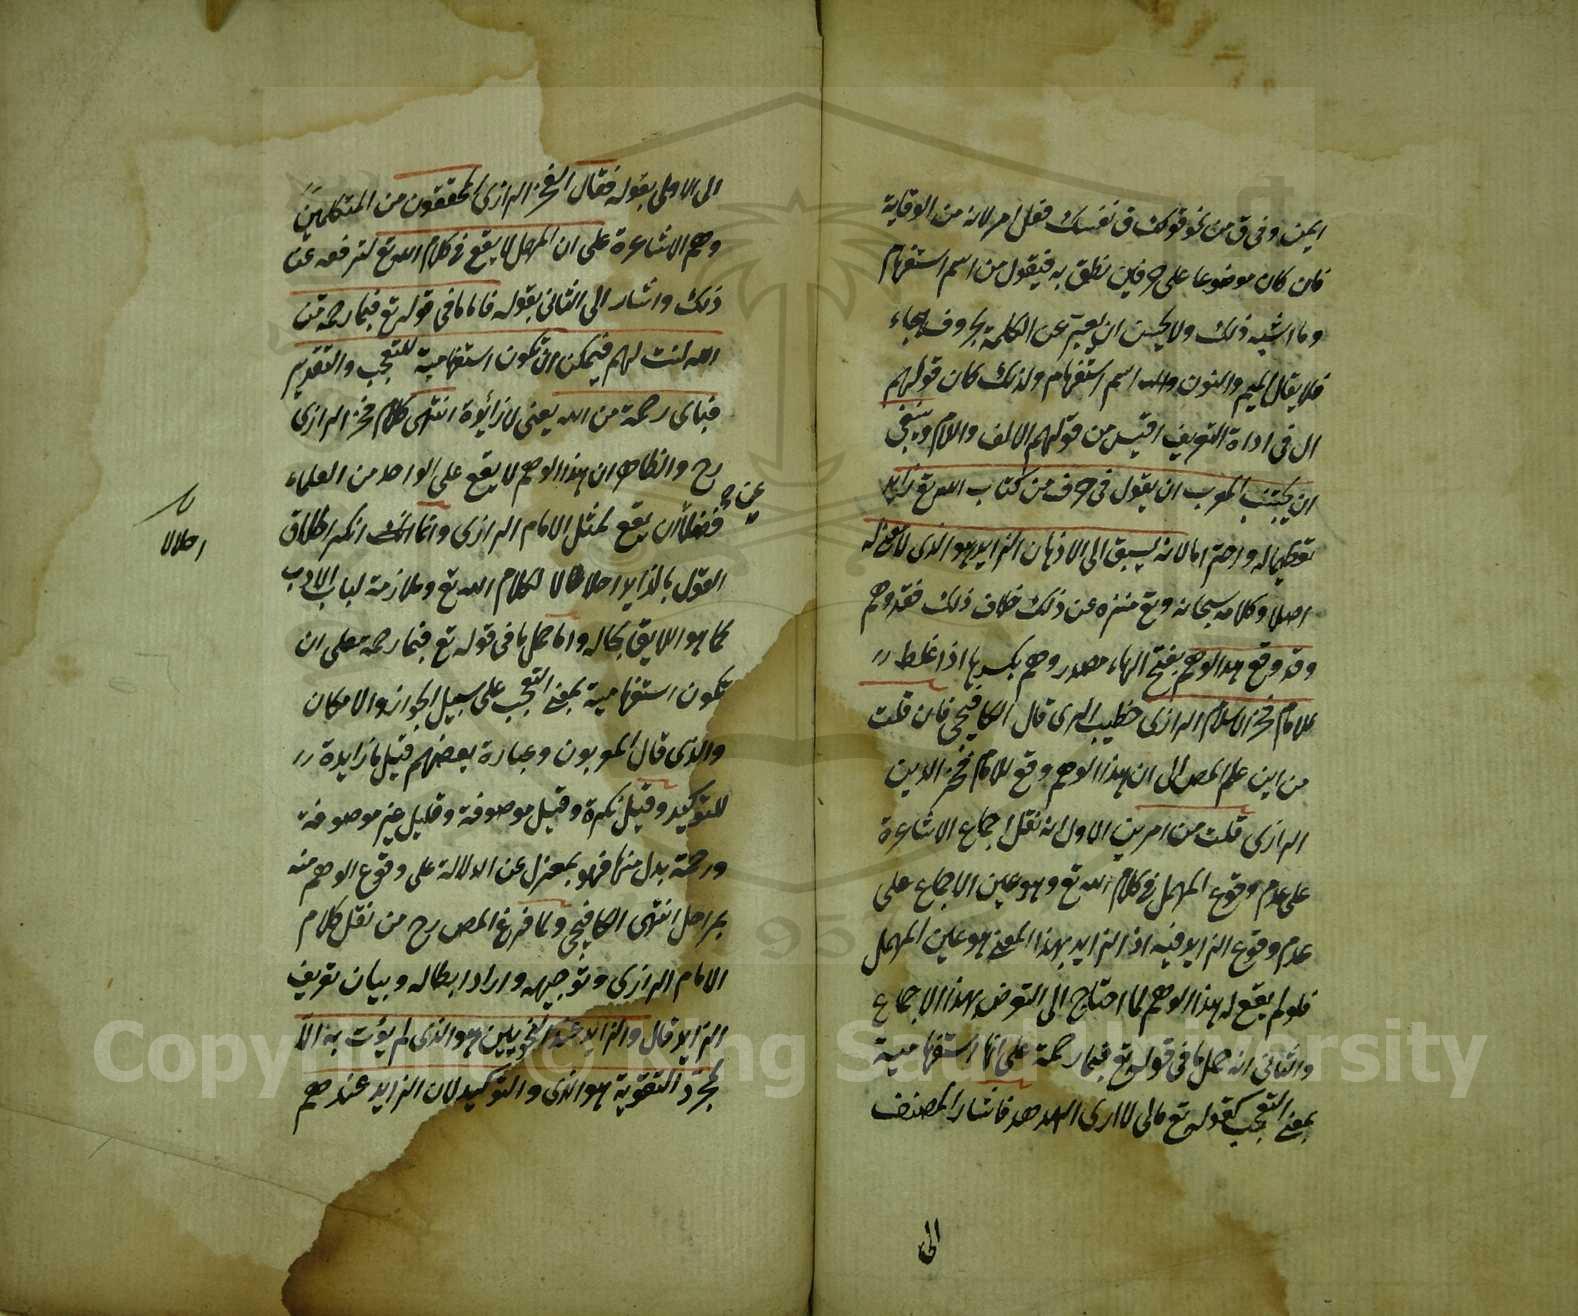 ايمن وفي ق من نحو قولك ق نفسك فعل امر لانه من الوقاية
فان كان موضوعا على حرفين نطق به فيقول من اسم استفهام
وما اشبه ذلك ولا يحسن ان يعبر عن الكلمة بحروف الهجاء
فلا يقال الميم والنون اسم استفهام ولذلك كان قولهم
ال في اداة التعريف اقيس من قولهم الالف واللام وينبغي
ان يجتنب المعرب ان يقول في حرف من كتاب الله تع زايد
تعظيما له واحتراما لانه يسبق الى الاذهان ان الزايد هو الذي لا معنى له
اصلا وكلامه سبحانه وتع منزه عن ذلك فقد وهم
وقد وقع هذا الوهم بفتح الهاء مصدر وهم بكسرها اذا غلط
للامام فخر الاسلام الرازي خطيب الري قال الكافيجي فان قلت
من اين علم المص الى ان هذا الوهم وقع للامام فخر الدين
الرازي قلت من امرين الاول انه نقل اجماع الاشاعرة
على عدم وقوع المهمل في كلام الله تع وهو عين الاجماع على
عدم وقوع الزايد فيه اذ الزايد بهذا المعنى هو عين المهمل
فلو لم يقع له هذا الوهم لما احتاج الى التعرض بهذا الاجماع
والثاني انه حمل ما في قوله تع فبما رحمة على انها استفهامية
بمعنى التعجب كقوله تع مالي لا ارى الهدهد فاشار المصنف
الى
الى الاول بقوله فقال الفخر الرازي المحققون من المتكلمين
وهم الاشاعرة على ان المهمل لا يقع في كلام الله تع لترفعه عن
ذلك واشار الى الثاني بقوله فاما ما في قوله تع فبما رحمة من
الله لنت لهم فيمكن ان تكون استفهامية للتعجب والتقدير
فباي رحمة من الله يعني لا زائدة انتهى كلام فخر الرازي
رح والظاهر ان هذا الوهم لا يقع على الواحد من العلماء
فضلا ان يقع لمثل الامام الرازي وانما انكر اطلاق
القول بالزايد اجلالا لكلام الله تع وملازمة لباب الادب
كما هو اللايق بحاله واما حمل ما في قوله تع فبما رحمة على ان
تكون استفهامية بمعنى التعجب على سبيل الجواز والامكان
والذي قال المعربون وعبارة بعضهم قيل ما زايدة
للتوكيد وقيل نكرة وقيل موصوفة وقليل غير موصوفة
ورحمة بدل منها فهو بمعزل عن الدلالة على وقوع الوهم منه
بمراحل انتهى الكافيجي ولما فرغ المص رح من نقل كلام
الامام الرازي وتوجيهه واراد ابطاله وبيان تعريف
الزايد قال والزايد عند النحويين هو الذي لم يؤت به الا
لمجرد التقوية هو الذي والتوكيد لان الزايد عندهم
اجلالا
Copyright © King Saud University